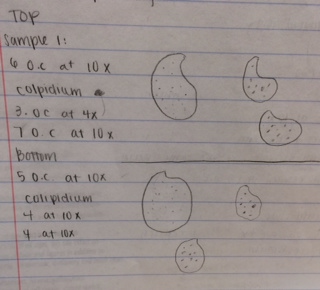 TOP
Sample 1:
6 O.C at 10x
colpidium
3. OC at 4x
7 O.C at 10x
Bottom
5 O.C. at 10x
colipidium
4 at 10x
4 at 10x